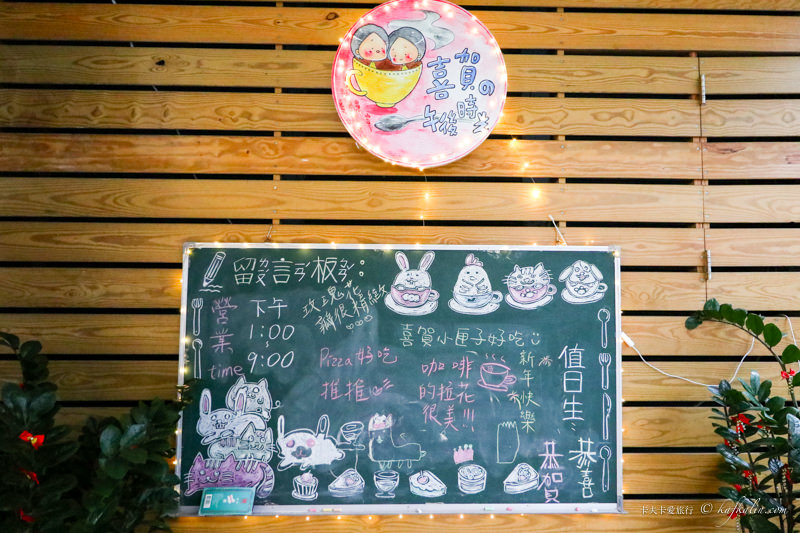 喜賀の
午後時光
留言板:
ㄌㄧㄡˊ ㄧㄢˊ ㄅㄢˇ
營業
time
下午
1:00
9:00
玫瑰花
辦很精緻
喜賀小匣子好吃
Pizza好吃
推推
咖啡
的拉花
很美!!!
新年快樂
值日生:
恭喜
恭賀
卡夫卡愛旅行 © kafkalin.com